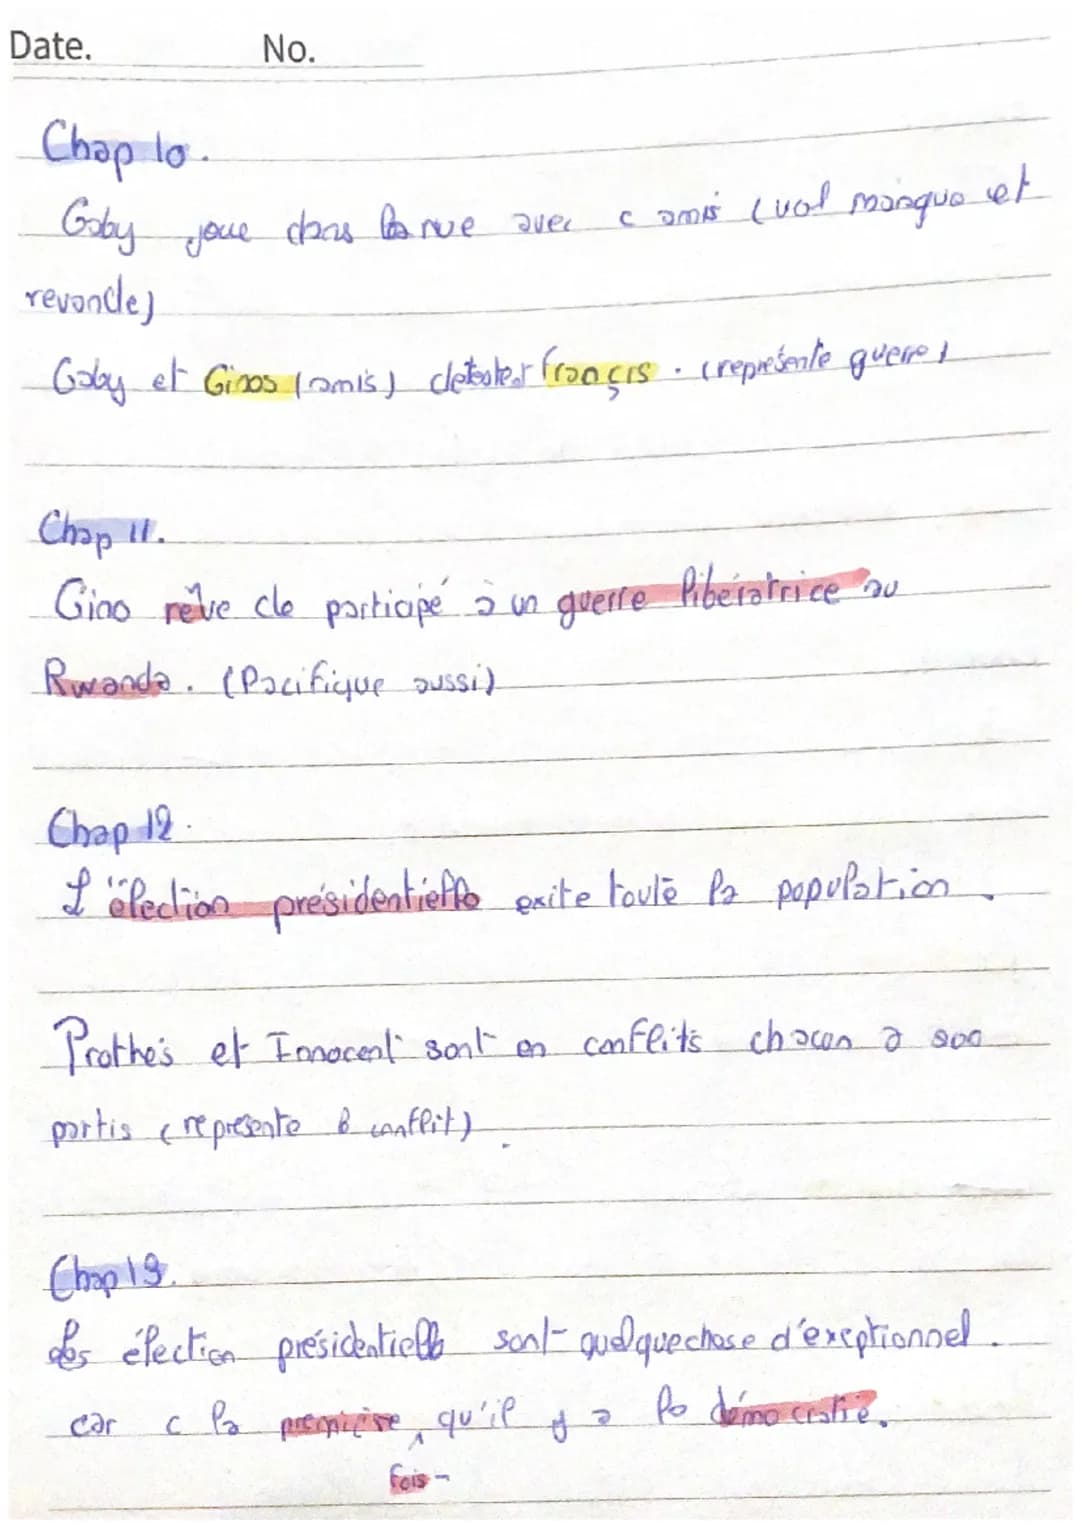 Date. No.
Chap 10.
Gaby joue dans la rue avec c amis (vol mangue et
revende)
Gaby et Ginos (amis) detester françis. (représente guerre)
Chap 11.
Gino rêve de participé à un guerre libératrice au
Rwanda. (Pacifique aussi)
Chap 12.
L'élection présidentielle exite toute la population.
Prothés et Innocent sont en conflits chacun a son
partis (représente le conflit)
Chap 13.
les élection présidentielle sont quelquechose d'exeptionnel.
car c la première qu'il y a la démocratie.
fois